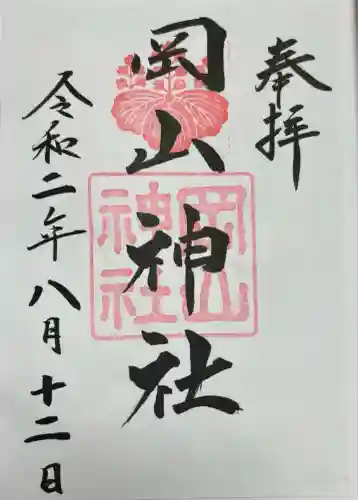 奉拝
岡山神社
岡山
神社
令和二年八月十二日